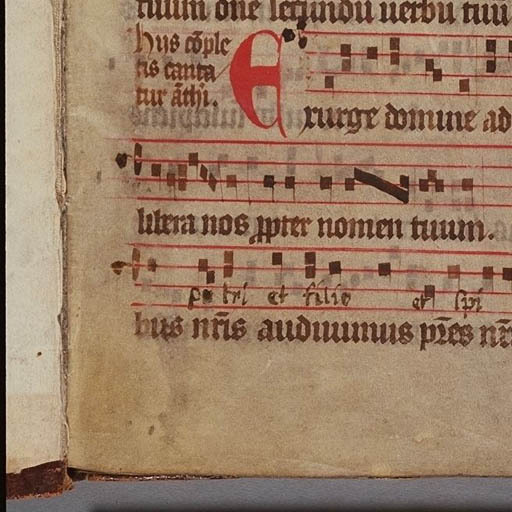 tuum dne secundu uerbu tuu
hus cople
tis canta
tur athi.
Exurge domine ad
libera nos ppter nomen tuum.
pa tri et filio et spi
bus nris audiuimus pres nr